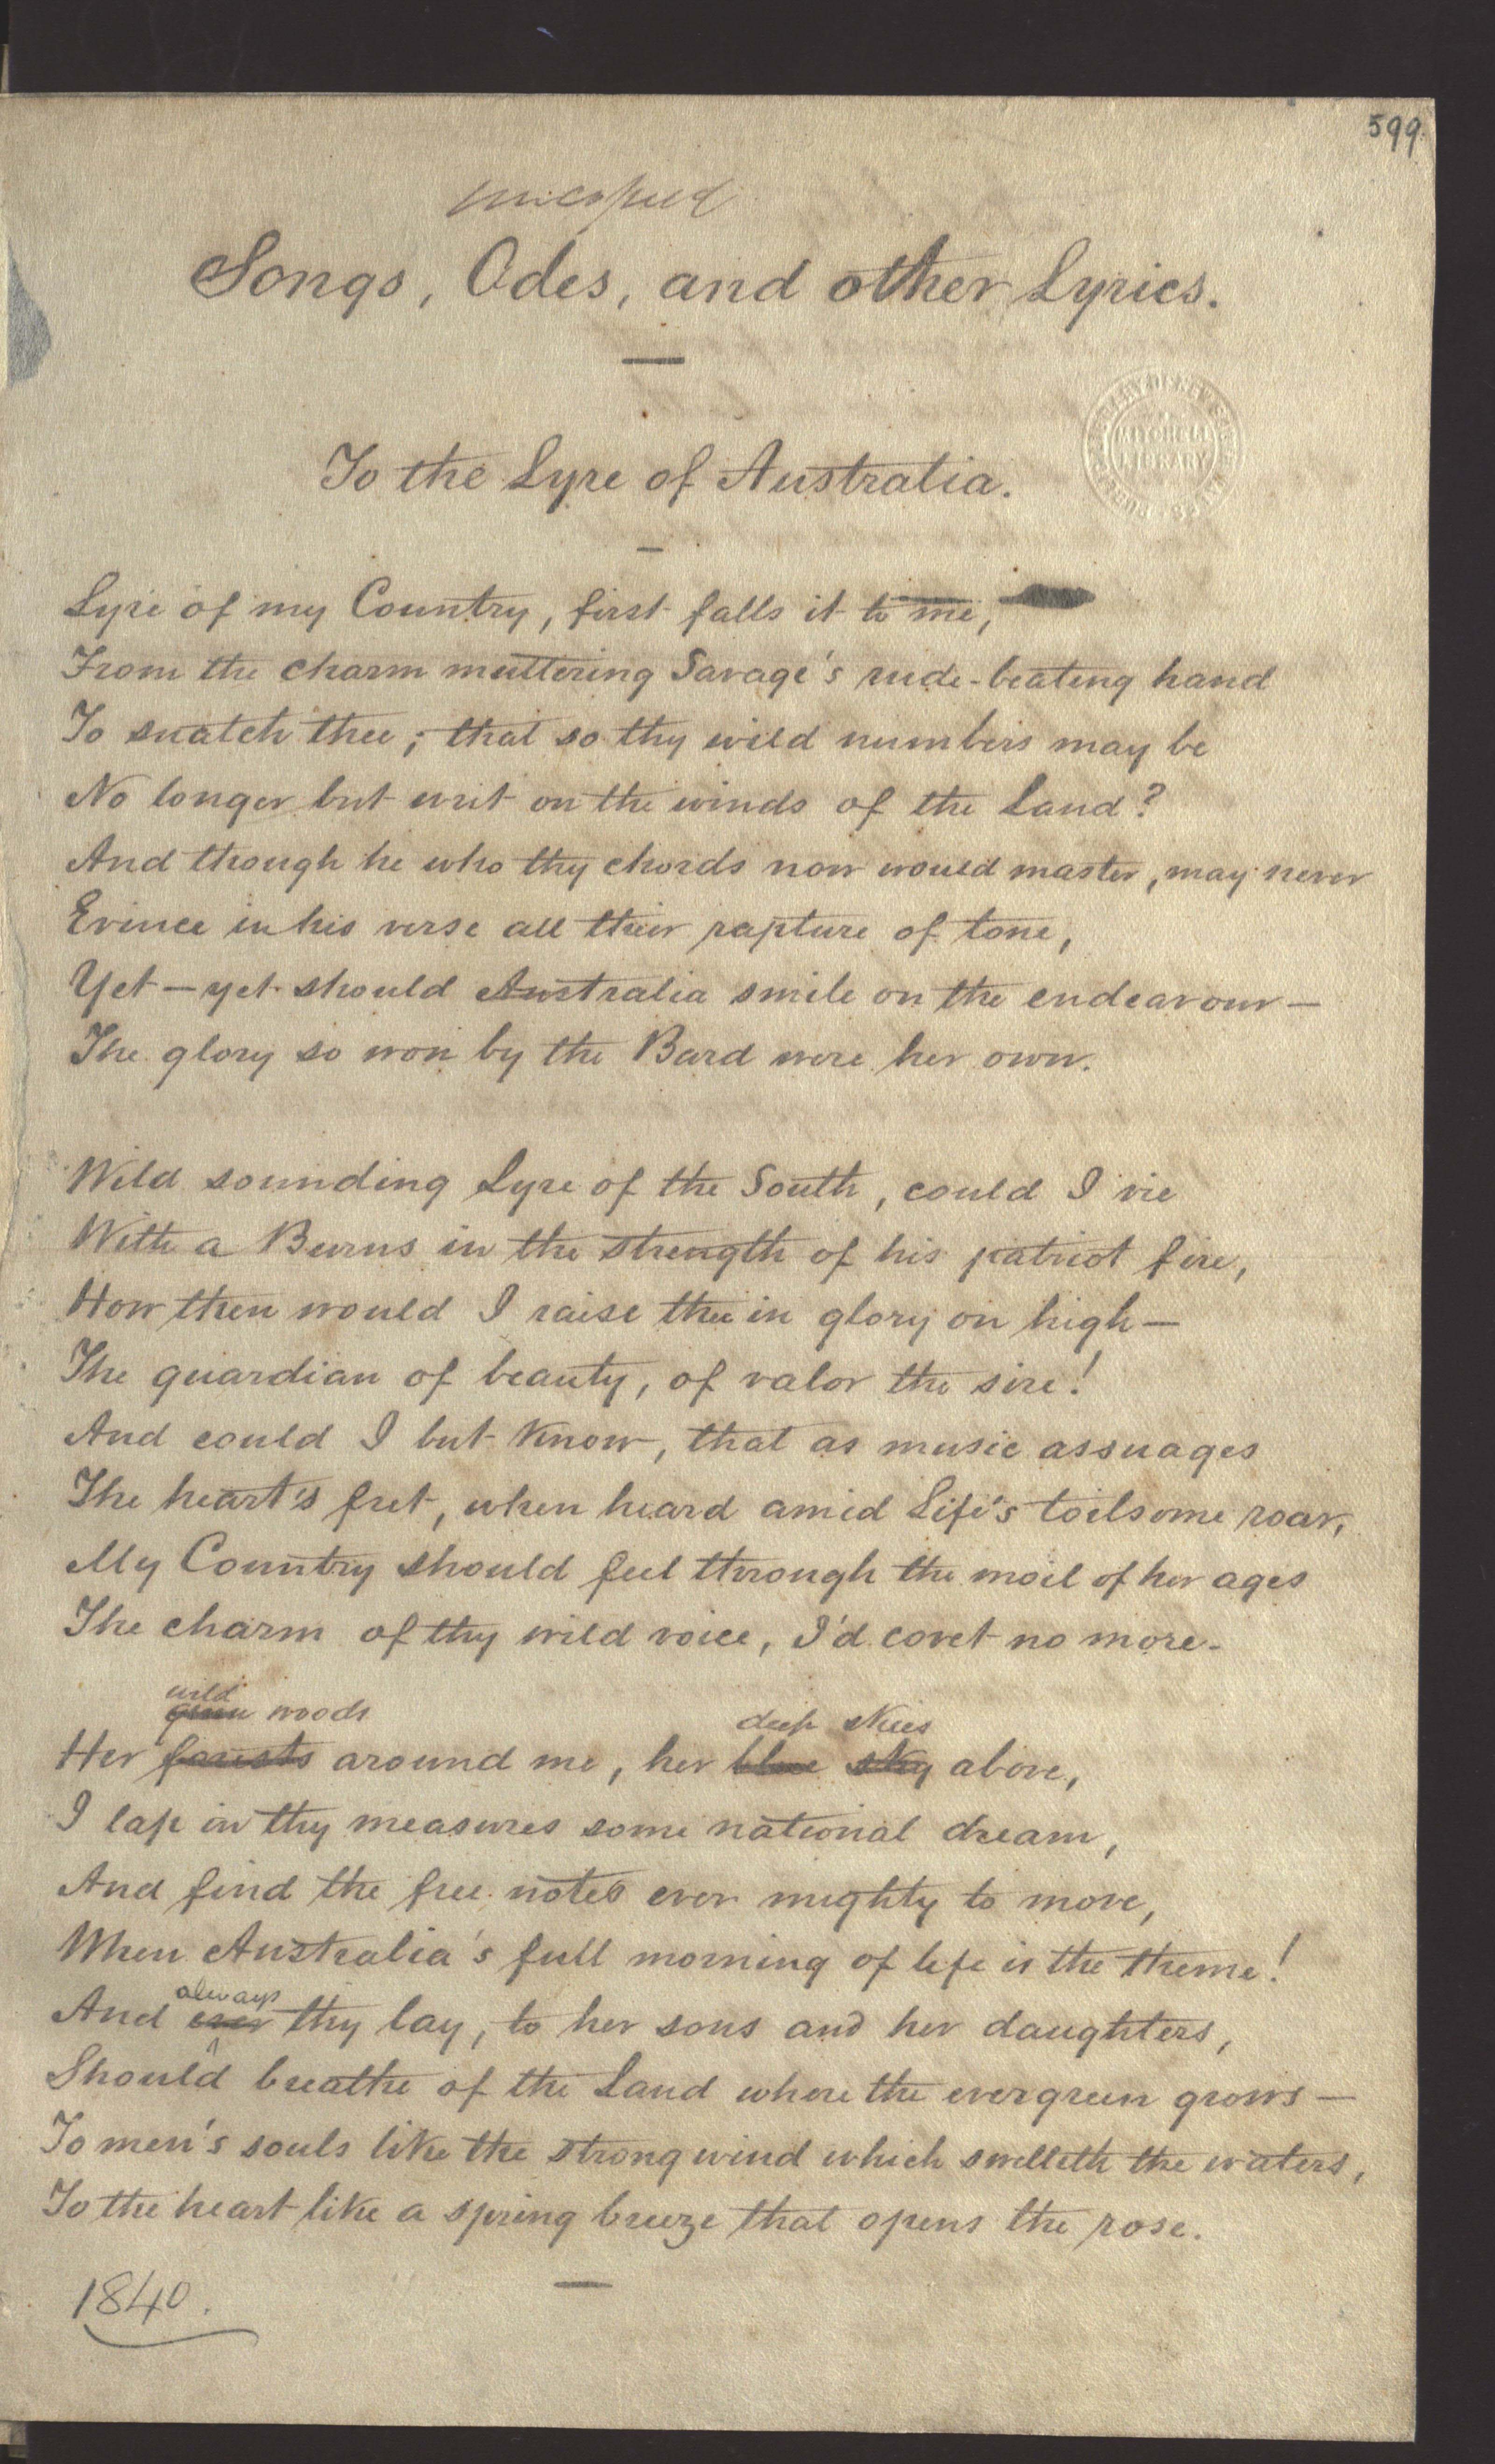 599
Songs, Odes, and other Lyrics.
To the Lyre of Australia.
MITCHELL
LIBRARY
Lyre of my Country, first falls it to me,
From the charm muttering Savage's rude-beating hand
To snatch thee; that so thy wild numbers may be
No longer but writ on the winds of the Land?
And though he who thy chords now would master, may never
Evince in his verse all their rapture of tone,
Yet — yet should Australia smile on the endeavour —
The glory so won by the Bard were her own.
Wild sounding Lyre of the South, could I vie
With a Burns in the strength of his patriot fire,
How then would I raise thee in glory on high —
The guardian of beauty, of valor the sire!
And could I but know, that as music assuages
The heart's fret, when heard amid Life's toilsome roar,
My Country should feel through the moil of her ages
The charm of thy wild voice, I'd covet no more.
wild
green woods deep skies
Her forests around me, her blue sky above,
I lap in thy measures some national dream,
And find the free notes ever mighty to move,
When Australia's full morning of life is the theme!
always
And ever thy lay, to her sons and her daughters,
Should breathe of the Land where the evergreen grows —
To men's souls like the strong wind which swelleth the waters,
To the heart like a spring breeze that opens the rose.
1840.